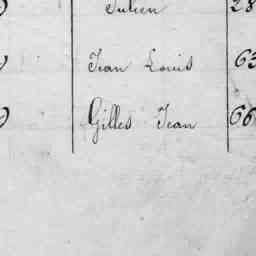 Julien 28
Jean Louis 63
Gilles Jean 66